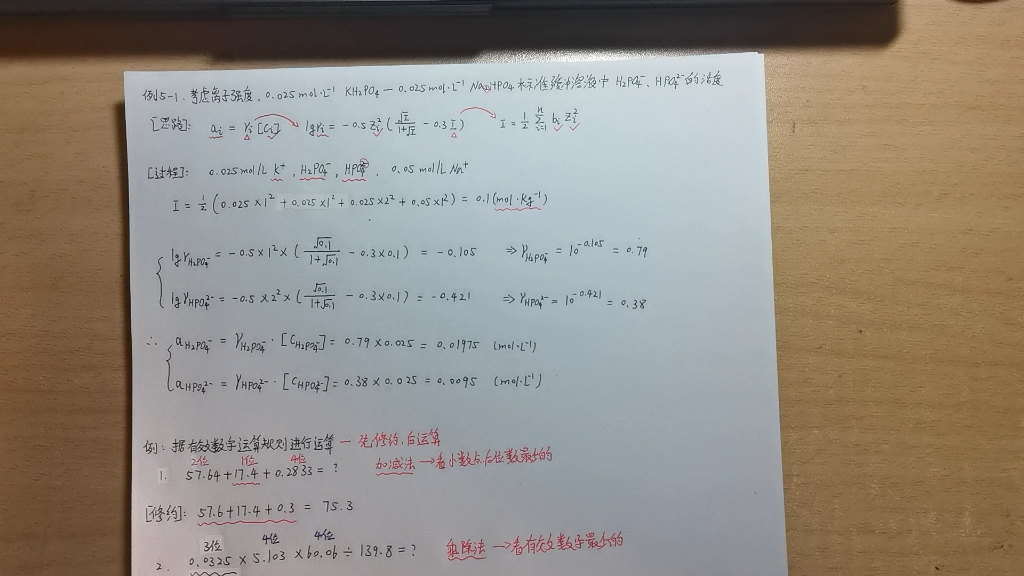 例5-1. 考虑离子强度, 0.025mol·L⁻¹ KH₂PO₄ — 0.025mol·L⁻¹ Na₂HPO₄ 标准缓冲溶液中 H₂PO₄⁻、HPO₄²⁻的活度
[思路]: aᵢ = γᵢ[cᵢ] lgγᵢ = -0.5Zᵢ²(√I/(1+√I) - 0.3I) I = 1/2 Σⁿᵢ₌₁ bᵢ Zᵢ²
[过程]: 0.025mol/L K⁺, H₂PO₄⁻, HPO₄²⁻, 0.05mol/L Na⁺
I = 1/2(0.025×1²+0.025×1²+0.025×2²+0.05×1²) = 0.1(mol·Kg⁻¹)
lgγH₂PO₄⁻ = -0.5×1²×(√0.1/(1+√0.1) - 0.3×0.1) = -0.105 ⇒γH₂PO₄⁻ = 10^-0.105 = 0.79
lgγHPO₄²⁻ = -0.5×2²×(√0.1/(1+√0.1) - 0.3×0.1) = -0.421 ⇒γHPO₄²⁻ = 10^-0.421 = 0.38
∴ aH₂PO₄⁻ = γH₂PO₄⁻·[cH₂PO₄⁻] = 0.79×0.025 = 0.01975 (mol·L⁻¹)
aHPO₄²⁻ = γHPO₄²⁻·[cHPO₄²⁻] = 0.38×0.025 = 0.0095 (mol·L⁻¹)
例: 据有效数字运算规则进行运算 — 先修约,后运算
2位 1位 4位
1. 57.64+17.4+0.2833 = ? 加减法→看小数点后位数最少的
[修约]: 57.6+17.4+0.3 = 75.3
3位 4位 4位
2. 0.0325×5.103×60.06÷139.8 = ? 乘除法→看有效数字最少的